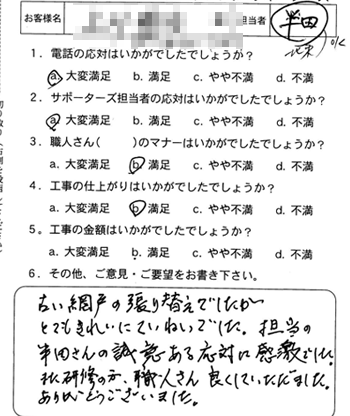 お客様名 担当者 半田
1．電話の応対はいかがでしたでしょうか？
a. 大変満足 b. 満足 c. やや不満 d. 不満
2．サポーターズ担当者の応対はいかがでしたでしょうか？
a. 大変満足 b. 満足 c. やや不満 d. 不満
3．職人さん(　　)のマナーはいかがでしたでしょうか？
a. 大変満足 b. 満足 c. やや不満 d. 不満
4．工事の仕上がりはいかがでしたでしょうか？
a. 大変満足 b. 満足 c. やや不満 d. 不満
5。工事の金額はいかがでしたでしょうか？
a. 大変満足 b. 満足 c. やや不満 d. 不満
6．その他、ご意見・ご要望をお書き下さい。
古い網戸の張り替えでしたが
とてもきれいにていねいでした。担当の
半田さんの誠意ある応対に感激でした。
研修の 職人さん 良くしていただきました。
ありがとうございました。